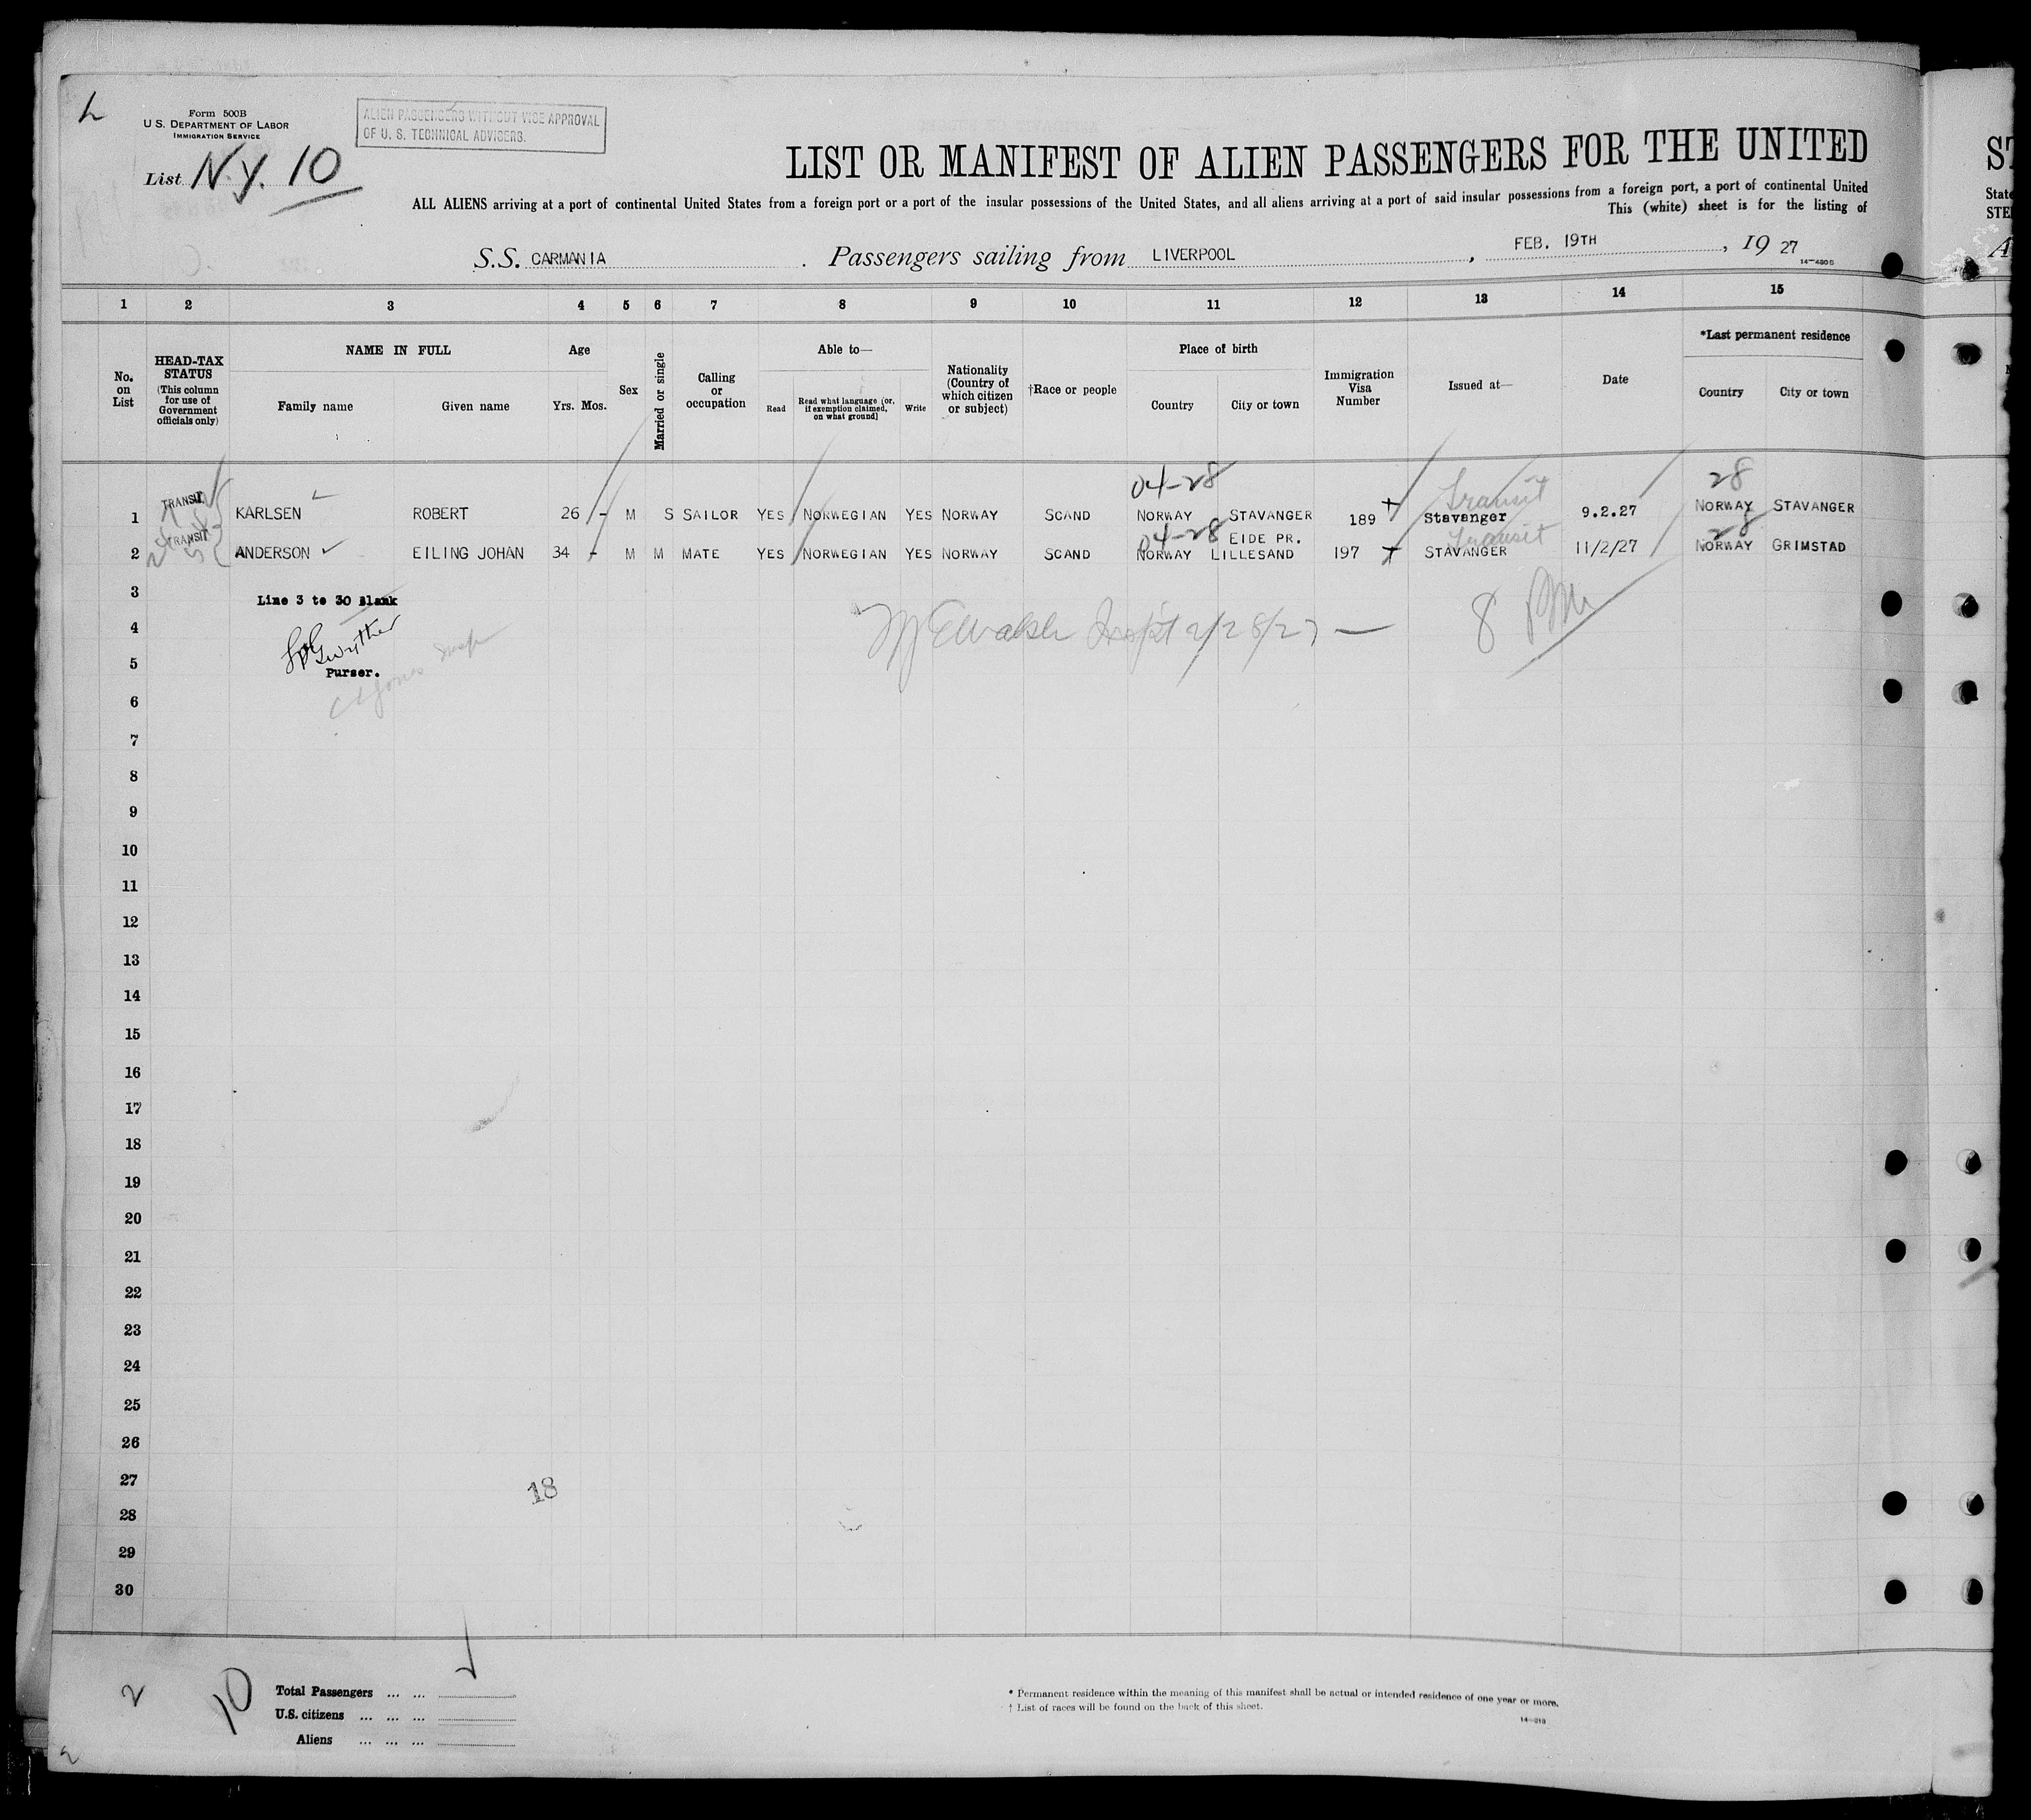 L
Form 500B
U. S. DEPARTMENT OF LABOR
IMMIGRATION SERVICE
ALIEN PASSENGERS WITHOUT VICE APPROVAL
OF U. S. TECHNICAL ADVICERS.
List N.Y. 10
LIST OR MANIFEST OF ALIEN PASSENGERS FOR THE UNITED
ST
ALL ALIENS arriving at a port of continental United States from a foreign port or a port of the insular possessions of the United States, and all aliens arriving at a port of said insular possessions from a foreign port, a port of continental United
State
This (white) sheet is for the listing of
STE
S.S. CARMANIA . Passengers sailing from LIVERPOOL , FEB. 19TH , 19 27
A
14—480B
1 2 3 4 5 6 7 8 9 10 11 12 13 14 15
No. on List
HEAD-TAX STATUS (This column for use of Government officials only)
NAME IN FULL
Family name Given name
Age
Yrs. Mos.
Sex
Married or single
Calling or occupation
Able to—
Read
Read what language [or, if exemption claimed, on what ground]
Write
Nationality (Country of which citizen or subject)
†Race or people
Place of birth
Country City or town
Immigration Visa Number
Issued at—
Date
*Last permanent residence
Country City or town
04-28 Transit 28
1 TRANSIT KARLSEN ROBERT 26 - M S SAILOR YES NORWEGIAN YES NORWAY SCAND NORWAY STAVANGER 189 Stavanger 9.2.27 NORWAY STAVANGER
04-28 EIDE PR. Transit 28
2 TRANSIT ANDERSON EILING JOHAN 34 - M M MATE YES NORWEGIAN YES NORWAY SCAND NORWAY LILLESAND 197 STAVANGER 11/2/27 NORWAY GRIMSTAD
3 Line 3 to 30 Blank
4 2/28/27 — 8 PM
5 Purser.
6
7
8
9
10
11
12
13
14
15
16
17
18
19
20
21
22
23
24
25
26
27
18
28
29
30
2 10
Total Passengers ... ...
U.S. citizens ... ... ...
Aliens ... ... ...
* Permanent residence within the meaning of this manifest shall be actual or intended residence of one year or more.
† List of races will be found on the back of this sheet.
14—213
2